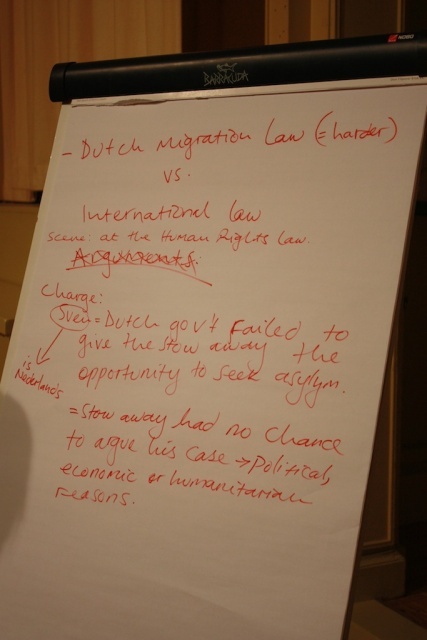 BARRACUDA
NOBO
- Dutch Migration Law (= harder)
vs.
International law
Scene: at the Human Rights Law.
Arguments:
Charge:
Sven = Dutch gov't Failed to
give the stow away the
opportunity to seek asylym.
is
Nederlands
= Stow away had no chance
to argue his case → Political,
economic or humanitarian
reasons.